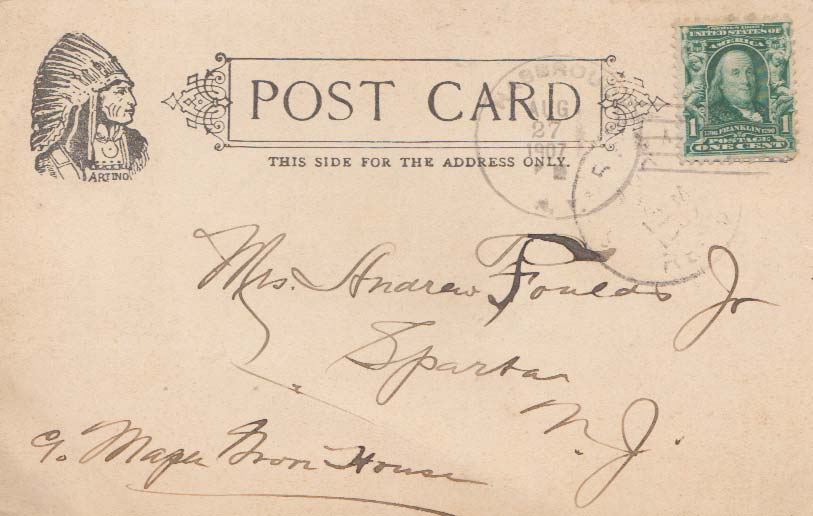 POST CARD
THIS SIDE FOR THE ADDRESS ONLY.
ARTINO
AUG
27
1907
N.Y.
SERIES 1902
UNITED STATES OF
AMERICA
1 1706 FRANKLIN 1790 1
POSTAGE
ONE CENT
REC'D
Mrs. Andrew Foulds Jr
Sparta
N.J.
House